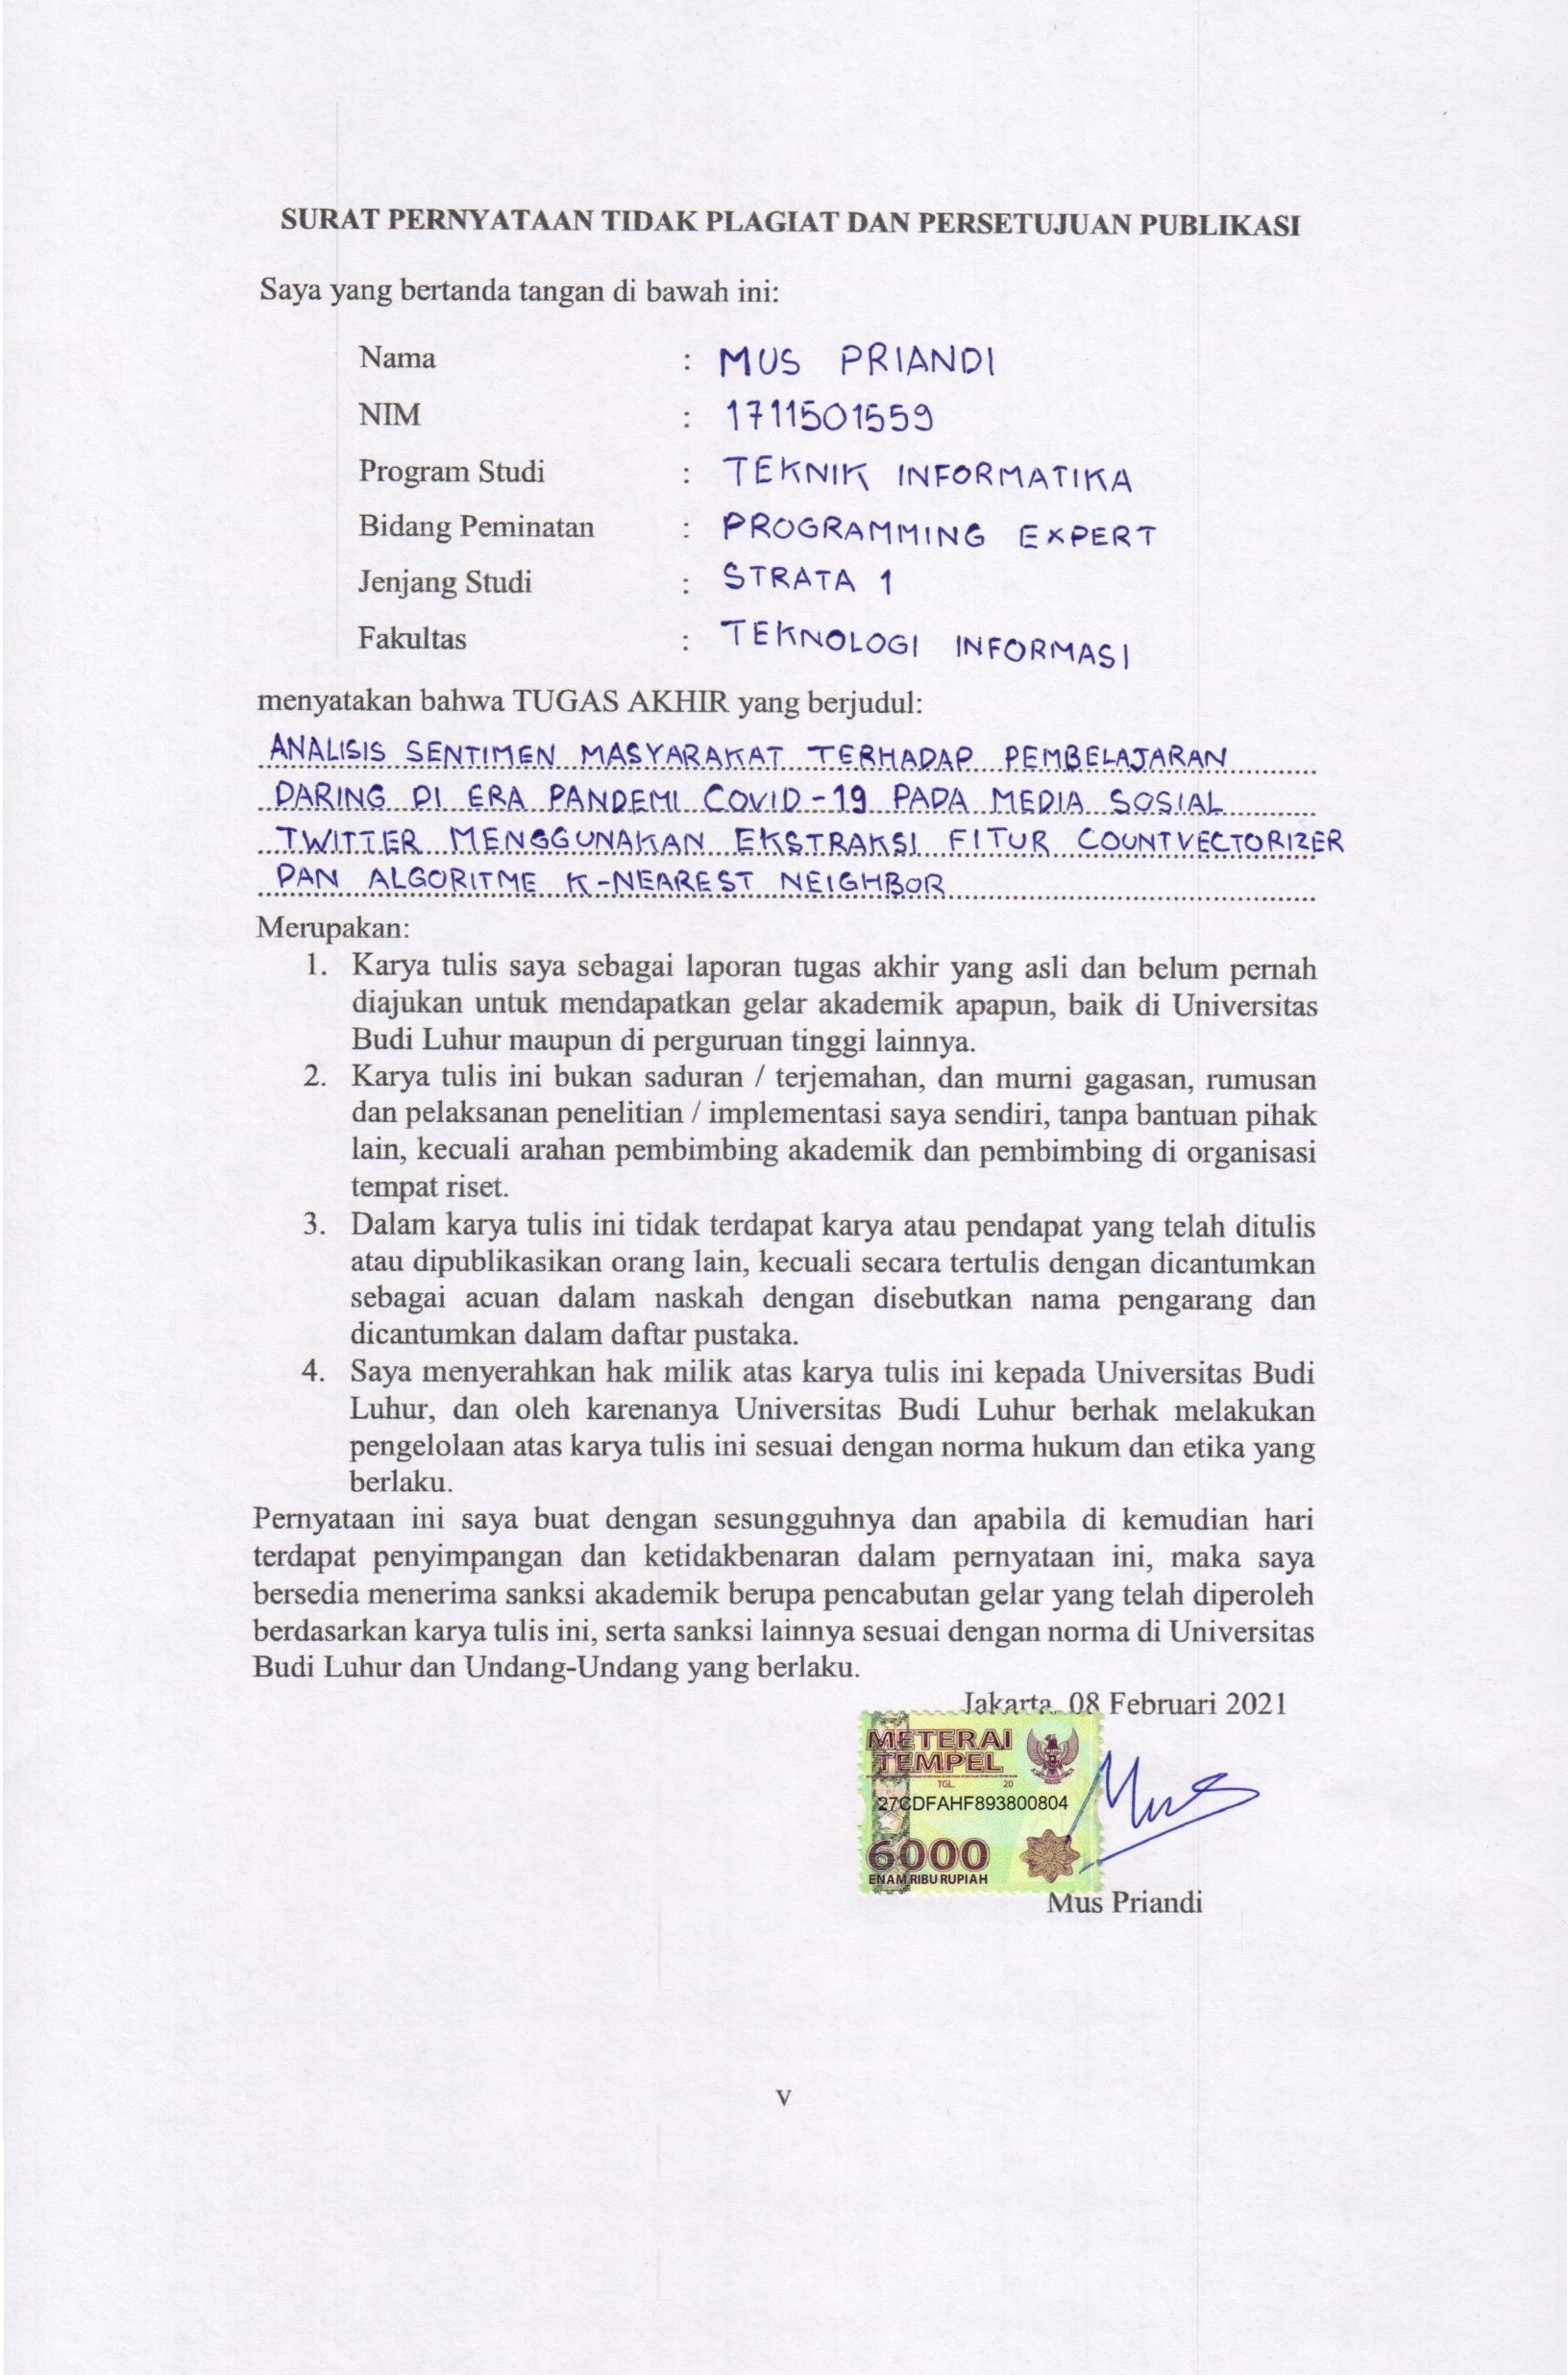 SURAT PERNYATAAN TIDAK PLAGIAT DAN PERSETUJUAN PUBLIKASI
Saya yang bertanda tangan di bawah ini:
Nama : MUS PRIANDI
NIM : 1711501559
Program Studi : TEKNIK INFORMATIKA
Bidang Peminatan : PROGRAMMING EXPERT
Jenjang Studi : STRATA 1
Fakultas : TEKNOLOGI INFORMASI
menyatakan bahwa TUGAS AKHIR yang berjudul:
ANALISIS SENTIMEN MASYARAKAT TERHADAP PEMBELAJARAN
DARING DI ERA PANDEMI COVID-19 PADA MEDIA SOSIAL
TWITTER MENGGUNAKAN EKSTRAKSI FITUR COUNTVECTORIZER
DAN ALGORITME K-NEAREST NEIGHBOR
Merupakan:
1. Karya tulis saya sebagai laporan tugas akhir yang asli dan belum pernah
diajukan untuk mendapatkan gelar akademik apapun, baik di Universitas
Budi Luhur maupun di perguruan tinggi lainnya.
2. Karya tulis ini bukan saduran / terjemahan, dan murni gagasan, rumusan
dan pelaksanan penelitian / implementasi saya sendiri, tanpa bantuan pihak
lain, kecuali arahan pembimbing akademik dan pembimbing di organisasi
tempat riset.
3. Dalam karya tulis ini tidak terdapat karya atau pendapat yang telah ditulis
atau dipublikasikan orang lain, kecuali secara tertulis dengan dicantumkan
sebagai acuan dalam naskah dengan disebutkan nama pengarang dan
dicantumkan dalam daftar pustaka.
4. Saya menyerahkan hak milik atas karya tulis ini kepada Universitas Budi
Luhur, dan oleh karenanya Universitas Budi Luhur berhak melakukan
pengelolaan atas karya tulis ini sesuai dengan norma hukum dan etika yang
berlaku.
Pernyataan ini saya buat dengan sesungguhnya dan apabila di kemudian hari
terdapat penyimpangan dan ketidakbenaran dalam pernyataan ini, maka saya
bersedia menerima sanksi akademik berupa pencabutan gelar yang telah diperoleh
berdasarkan karya tulis ini, serta sanksi lainnya sesuai dengan norma di Universitas
Budi Luhur dan Undang-Undang yang berlaku.
Jakarta, 08 Februari 2021
METERAI
TEMPEL
TGL. 20
27CDFAHF893800804
6000
ENAM RIBU RUPIAH
Mus
Mus Priandi
v